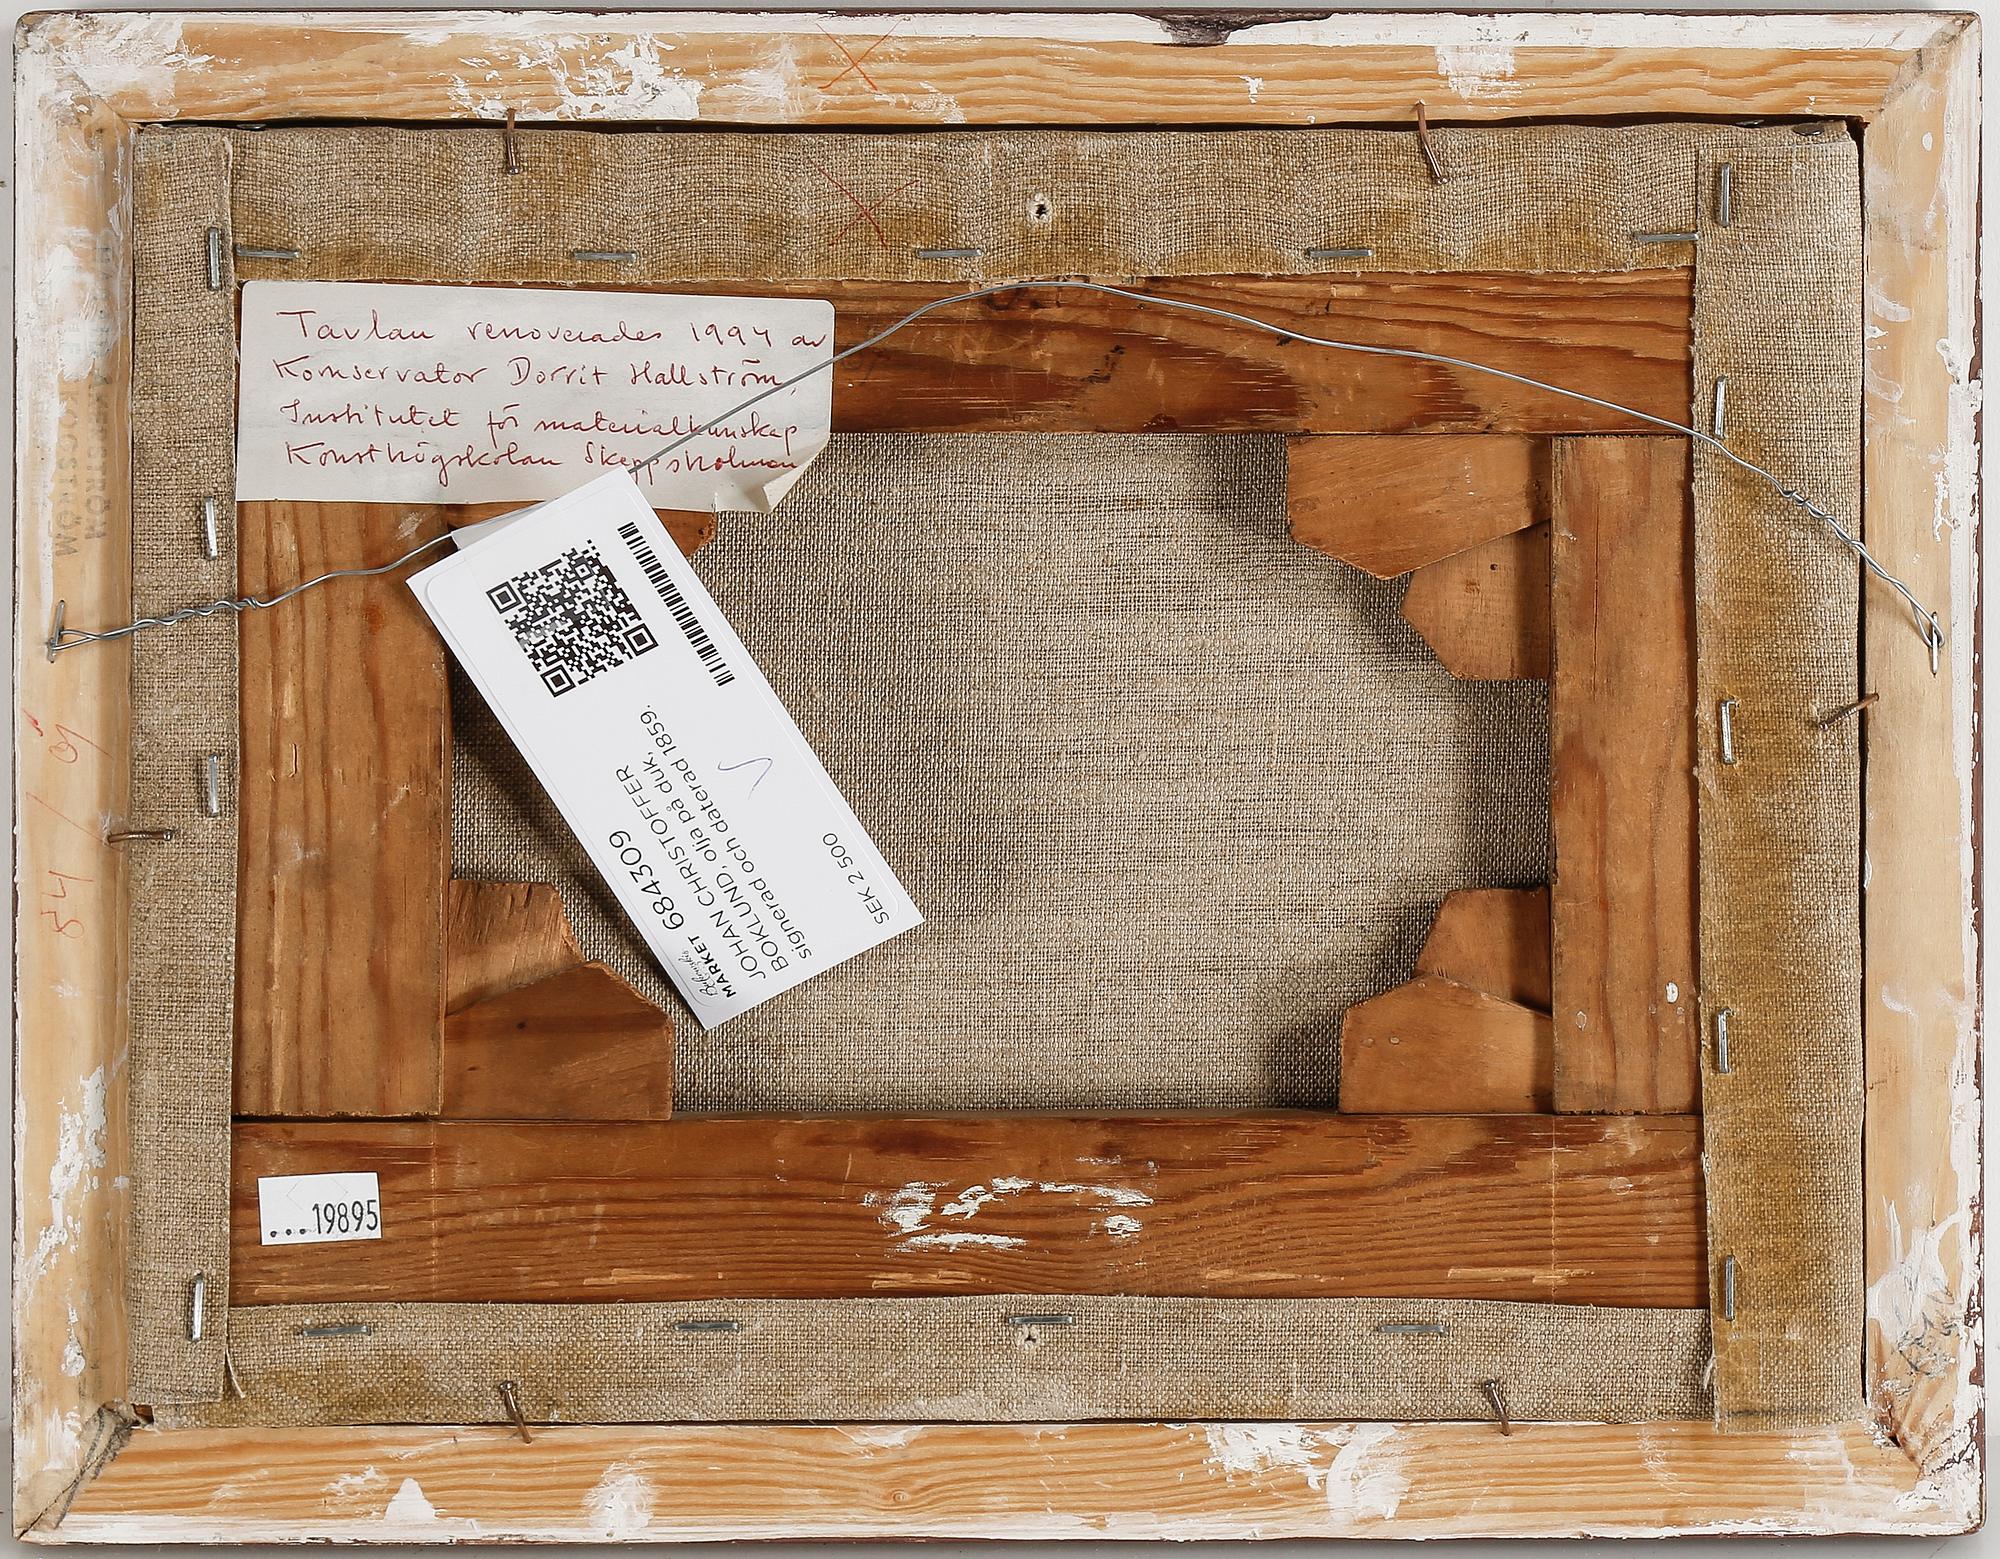 Tavlan renoverades 1994 av
Konservator Dorrit Hallström,
Institutet för materialkunskap
Konsthögskolan Skeppsholmen
Bukowskis
MARKET 684309
JOHAN CHRISTOFFER
BOKLUND, olja på duk,
signerad och daterad 1859.
SEK 2 500
...19895